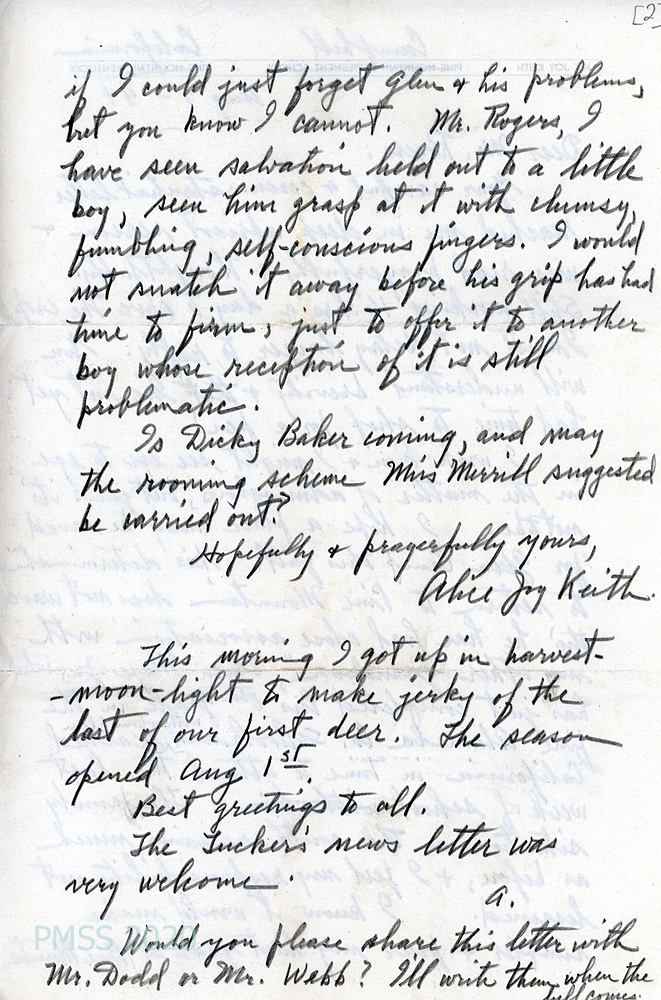 [2]
if I could just forget Glen & his problems,
but you know I cannot. Mr. Rogers, I
have seen salvation held out to a little
boy, seen him grasp at it with clumsy,
fumbling, self-conscious fingers. I would
not snatch it away before his grip has had
time to firm, just to offer it to another
boy whose reception of it is still
problematic.
Is Dicky Baker coming, and may
the rooming scheme Miss Merrill suggested
be carried out?
Hopefully & prayerfully yours,
Alice Joy Keith.
This morning I got up in harvest-
-moon-light to make jerky of the
last of our first deer. The season
opened Aug 1st.
Best greetings to all.
The Tucker's news letter was
very welcome.
A.
PMSS 2020
Would you please share this letter with
Mr. Dodd or Mr. Webb? I'll write them when the
bell comes.